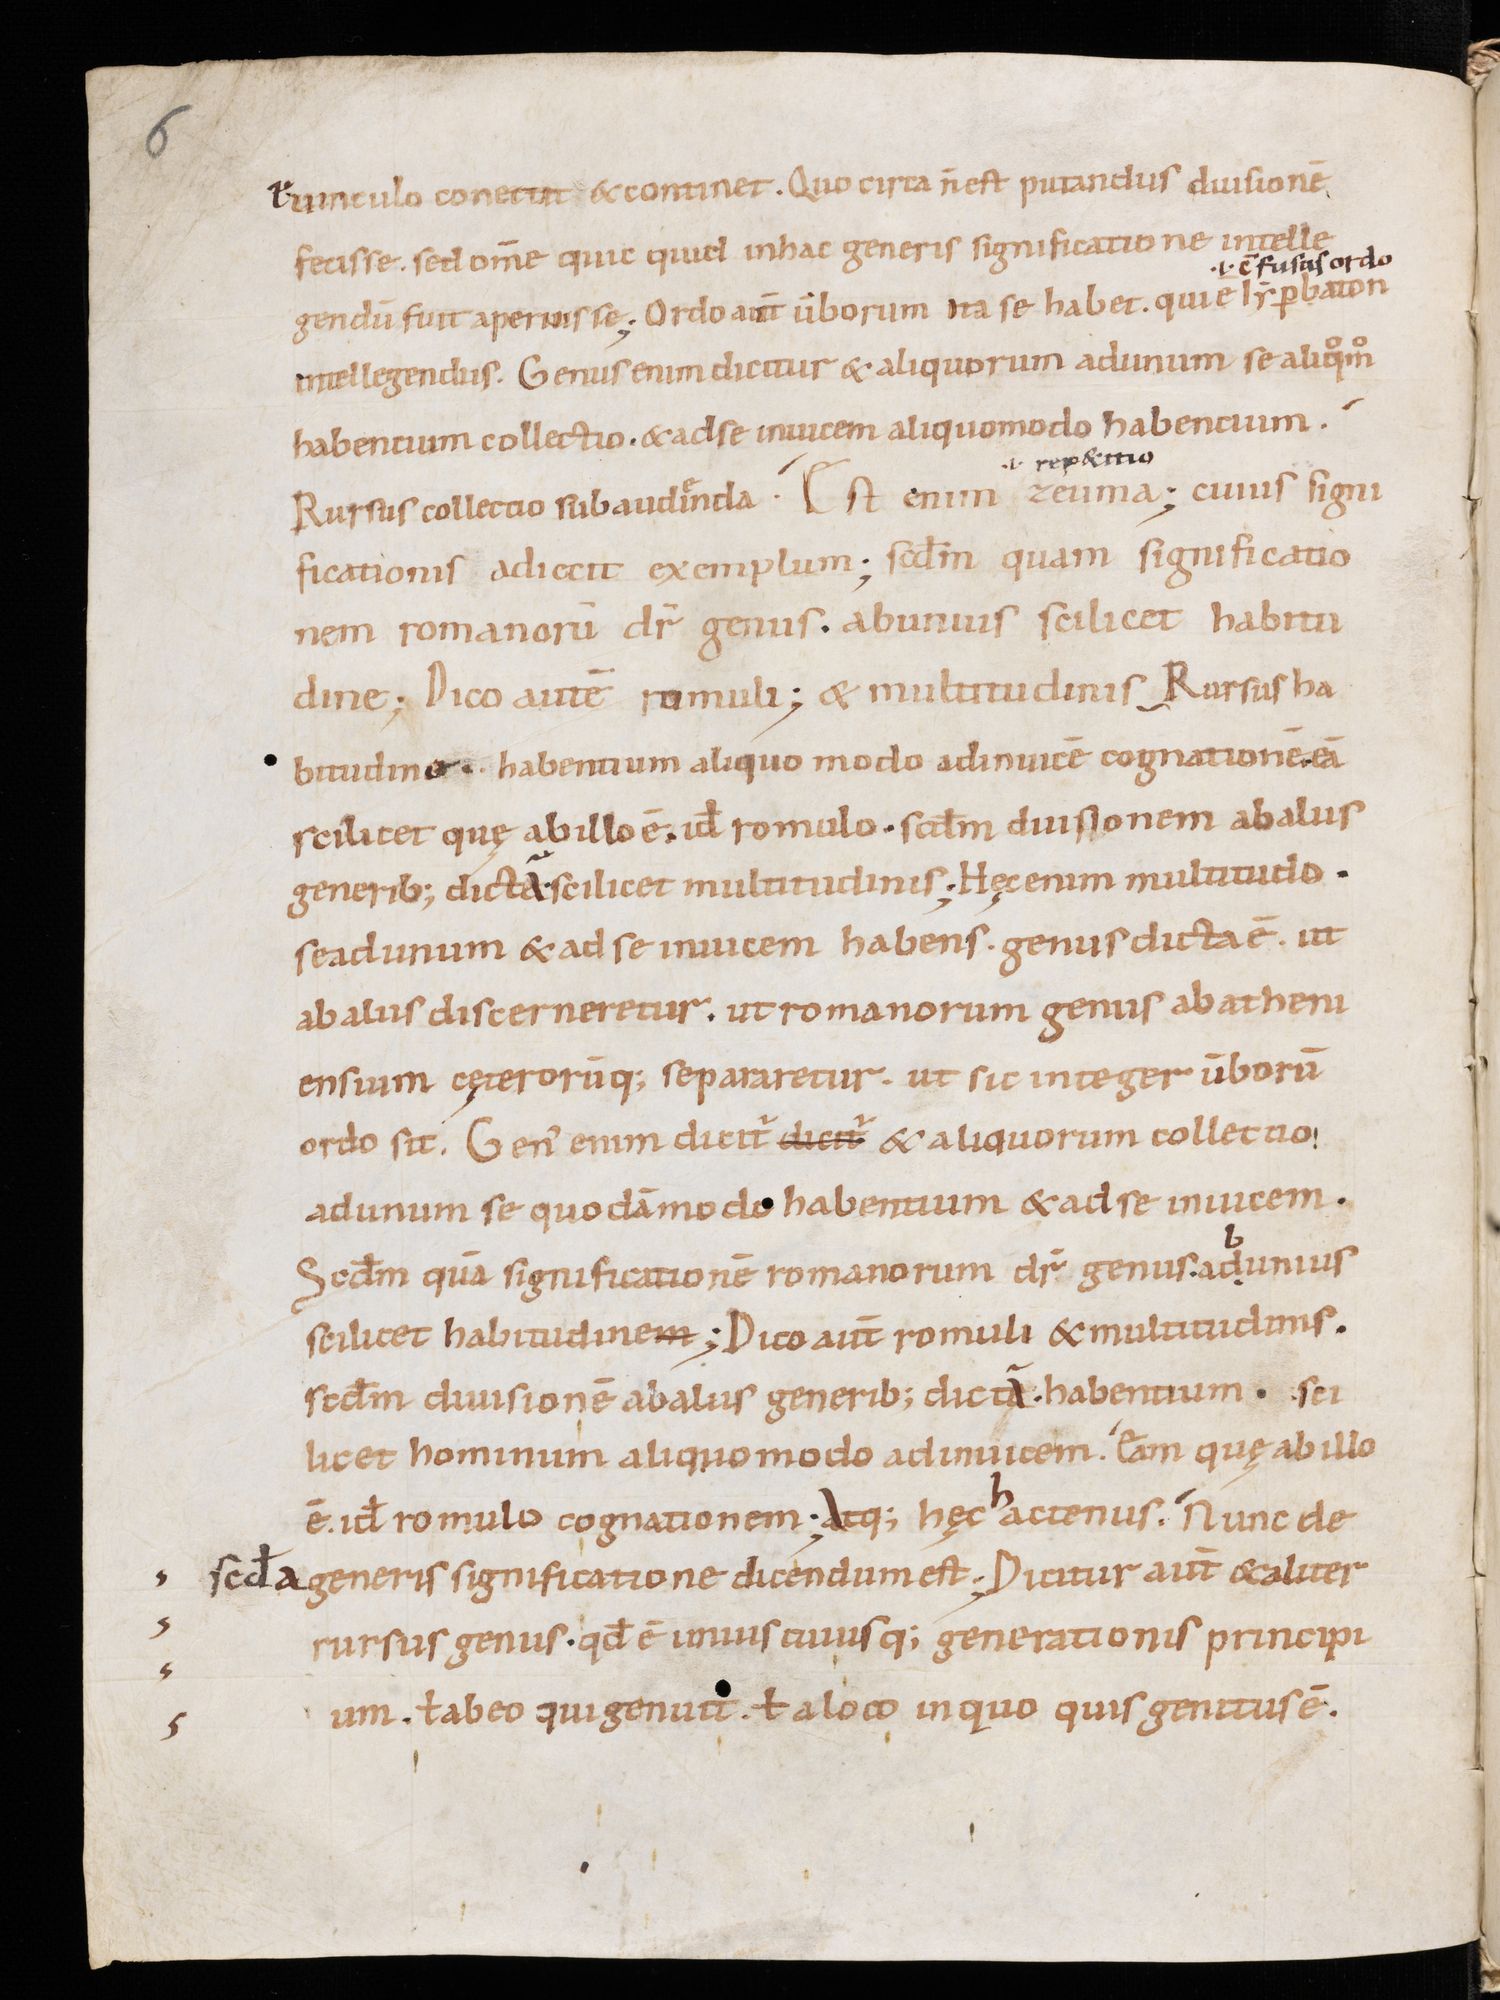 6
runculo conectit & continet. Quo circa n̄ est putandus diuisionē
fecisse. sed om̄e quic quid inhac generis significatione intelle
.i. c̄fusus ordo
gendū fuit aperuisse; Ordo aut̄ ūborum ita se habet. qui ē
intellegendus. Genus enim dicitur & aliquorum adunum se aliqͦmͦ
habentium collectio. & adse inuicem aliquomodo habentium.
.i. rep&itio
Rursus collectio subaudienda. Est enim zeuma; cuius signi
ficationis adiecit exemplum; scd̄m quam significatio
nem romanorū dr̄ genus. abunius scilicet habitu
dine; Dico autē romuli; & multitudinis Rursus ha
bitudine. habentium aliquo modo adinuicē cognationē. eā
scilicet quę abillo ē. id̄ romulo. scd̄m diuisionem abalus
generib; dictā. scilicet multitudinis; Hęc enim multitudo.
seadunum & ad se inuicem habens. genus dicta ē. ut
abalus discerneretur. ut romanorum genus abatheni
ensium cęterorūq; separaretur. ut sic integer ūborū
ordo sit. Gen' enim dicit᷑ dicit᷑ & aliquorum collectio
adunum se quodāmodo habentium & adse inuicem.
Scd̄m quā significationē romanorum dr̄ genus. ab unius
scilicet habitudinem; Dico aut̄ romuli & multitudinis.
scd̄m diuisionē abalus generib; dictā. habentium. sci
licet hominum aliquomodo adinuicem. Eam quę abillo
ē. id̄ romulo cognationem; Atq; hęc hactenus. Nunc de
scd̄a generis significatione dicendum est; Dicitur aut̄ & aliter
rursus genus. qd̄ ē uniuscuiusq; generationis principi
um. ł abeo qui genuit. ł aloco inquo quis genitus ē.